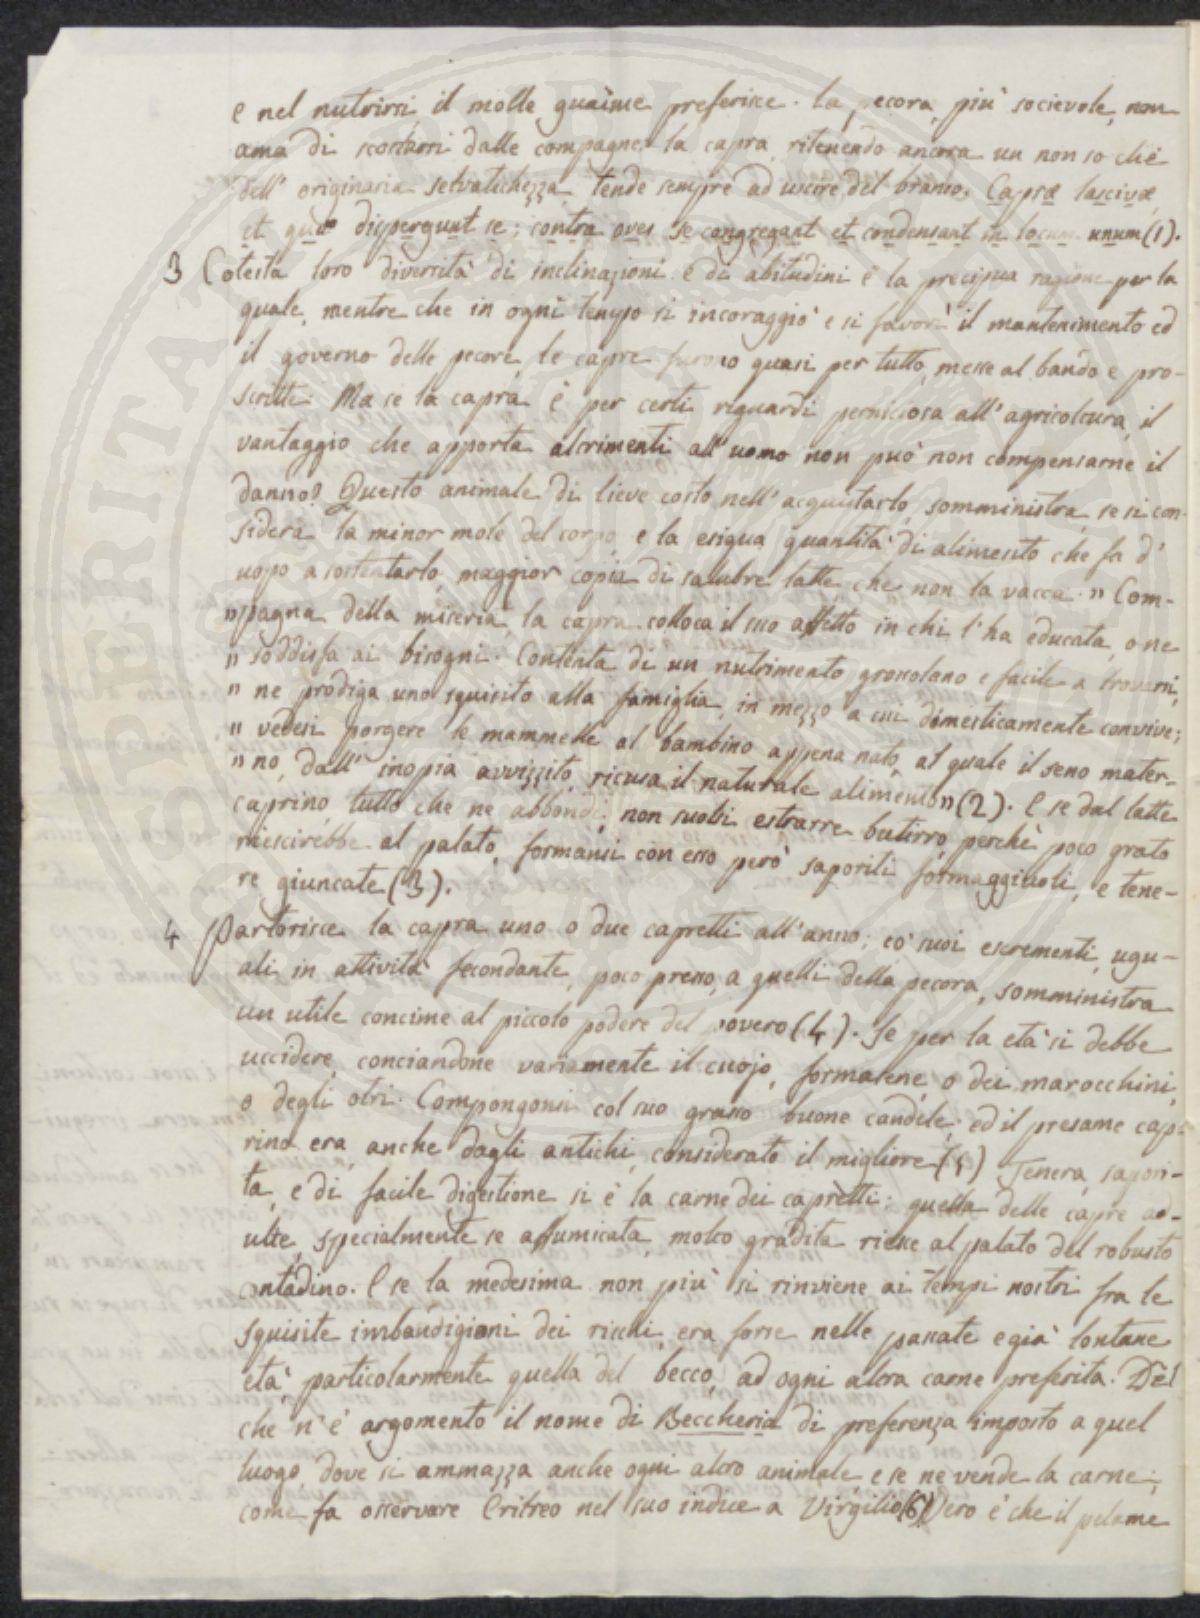 e nel nutrirsi, il molle guaime preferisce. La pecora, più socievole, non
ama di scostarsi dalle compagne: la capra, ritenendo ancora un non so chè
dell' originaria selvatichezza, tende sempre ad uscire del branco. Capræ lascivæ,
et quæ dispergunt se; contra oves se congregant et condensant in locum unum (1).
3 Cotesta loro diversità di inclinazioni e di abitudini è la precipua ragione per la
quale, mentre che in ogni tempo si incoraggiò e si favorì il mantenimento ed
il governo delle pecore, le capre furono quasi per tutto messe al bando e pro-
scritte. Ma se la capra è per certi riguardi perniciosa all' agricoltura, il
vantaggio che apporta altrimenti all' uomo non può non compensarne il
danno? Questo animale di lieve costo nell' acquistarlo, somministra, se si con-
sidera la minor mole del corpo, e la esigua quantità di alimento che fa d'
uopo a sostentarlo, maggior copia di salubre latte, che non la vacca. " Com-
" pagna della miseria, la capra colloca il suo affetto in chi l' ha educata, o ne
" soddisfa ai bisogni. Contenta di un nutrimento grossolano e facile a trovarsi,
" ne prodiga uno squisito alla famiglia, in mezzo a cui domesticamente convive;
" vedesi porgere le mammelle al bambino appena nato, al quale il seno mater-
" no, dall' inopia avvizzito, ricusa il naturale alimento " (2). E se dal latte
caprino, tutto che ne abbondi, non suolsi estrarre butirro, perchè poco grato
riescirebbe al palato, formansi con esso però saporiti formaggiuoli, e tene-
re giuncate (3).
4 Partorisce la capra uno o due capretti all' anno; co' suoi escrementi, ugu-
ali in attività fecondante, poco presso, a quelli della pecora, somministra
un utile concime al piccolo podere del povero (4). Se per la età si debbe
uccidere, conciandone variamente il cuojo, formansene o dei marocchini,
o degli otri. Compongonsi col suo grasso buone candele; ed il presame cap-
rino era, anche dagli antichi, considerato il migliore (5) Tenera, sapori-
ta, e di facile digestione si è la carne dei capretti: quella delle capre ad-
ulte, specialmente se affumicata, molto gradita riesce al palato del robusto
contadino. E se la medesima non più si rinviene ai tempi nostri fra le
squisite imbandigioni dei ricchi, era forse nelle passate e già lontane
età, particolarmente quella del becco, ad ogni altra carne preferita. Del
che n' è argomento il nome di Beccheria di preferenza imposto a quel
luogo dove si ammazza anche ogni altro animale, e se ne vende la carne;
come fa osservare Eritreo nel suo indice a Virgilio (6) Vero è che il pelame